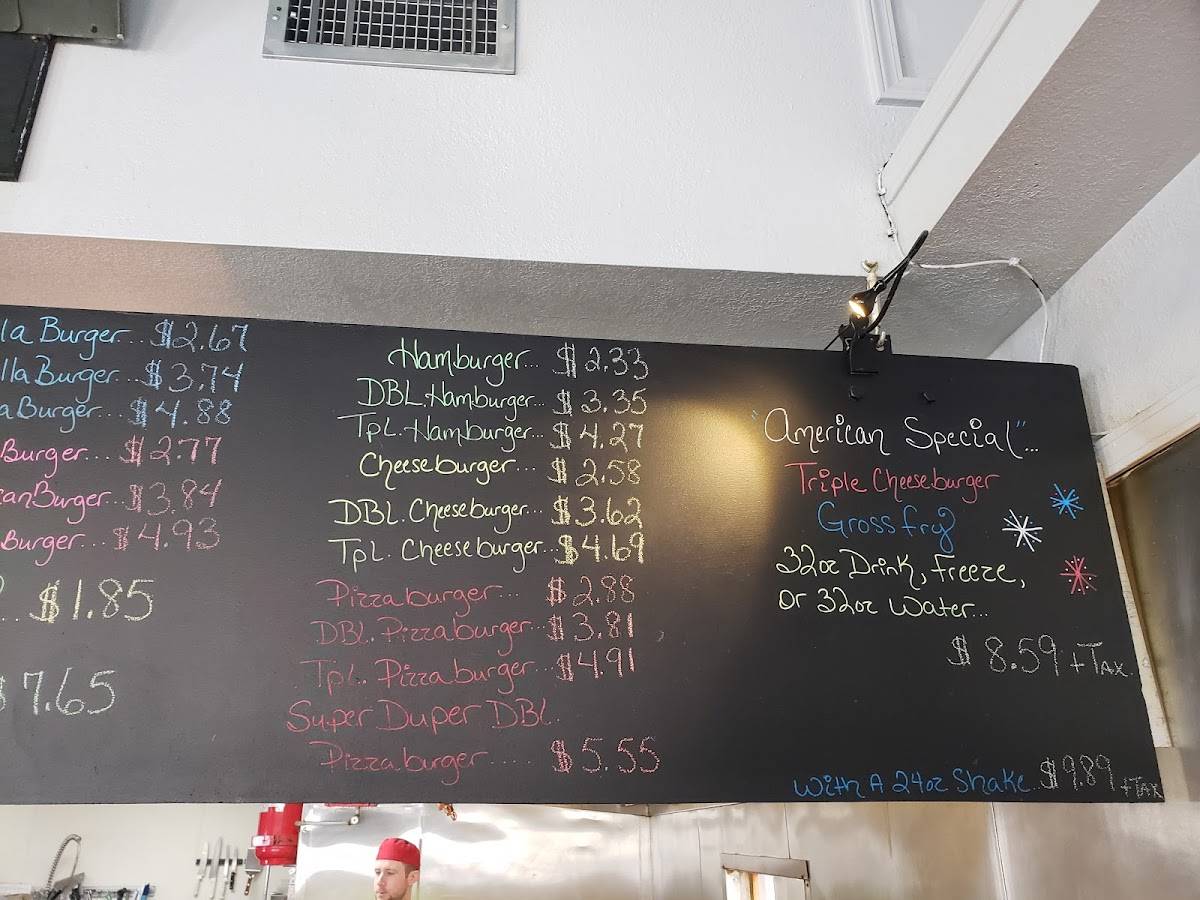 la Burger... $2.67
lla Burger... $3.74
a Burger... $4.88
Burger... $2.77
canBurger... $3.84
Burger... $4.93
.. $1.85
$7.65
Hamburger... $2.33
DBL. Hamburger... $3.35
TpL. Hamburger... $4.27
Cheeseburger... $2.58
DBL. Cheeseburger... $3.62
TpL. Cheeseburger... $4.69
Pizzaburger... $2.88
DBL. Pizzaburger... $3.81
TpL. Pizzaburger... $4.91
Super Duper DBL.
Pizzaburger.... $5.55
"American Special"...
Triple Cheeseburger
Gross Fry
32oz Drink, Freeze,
Or 32oz Water...
$8.59 + Tax
With A 24oz Shake.. $9.89 + Tax